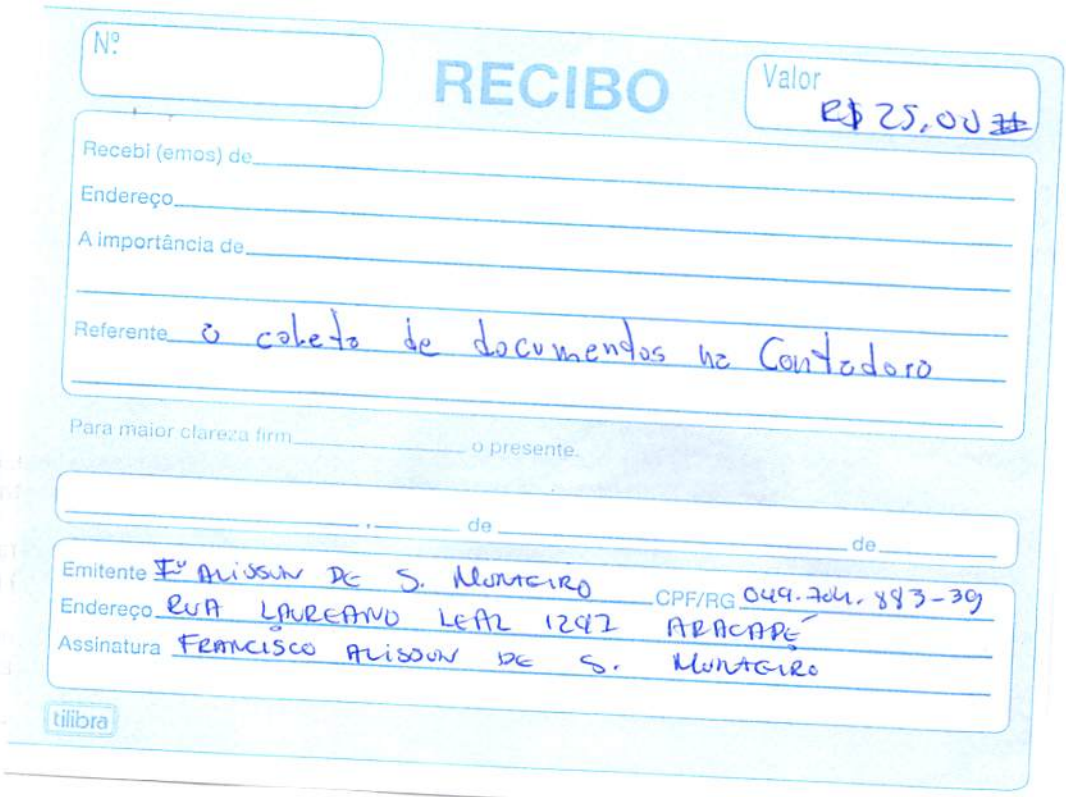 Nº
RECIBO
Valor
R$ 25,00 #
Recebi (emos) de
Endereço
A importância de
Referente a coleta de documentos na Contadora
Para maior clareza firm o presente.
, de de
Emitente Fº ALISSON DE S. MONTEIRO CPF/RG 049.704.883-39
Endereço RUA LAUREANO LEAL 1292 ARACAPÉ
Assinatura FRANCISCO ALISSON DE S. MONTEIRO
tilibra